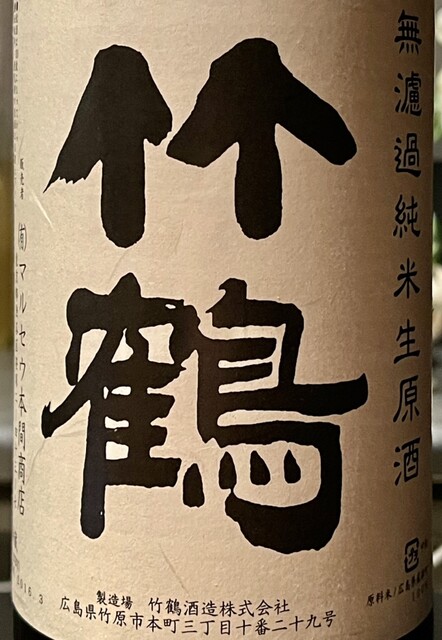 無濾過純米生原酒
竹鶴
販売者 ㈲マルセウ本間商店
製造場 竹鶴酒造株式会社
広島県竹原市本町三丁目十番二十九号
原料米/広島県産